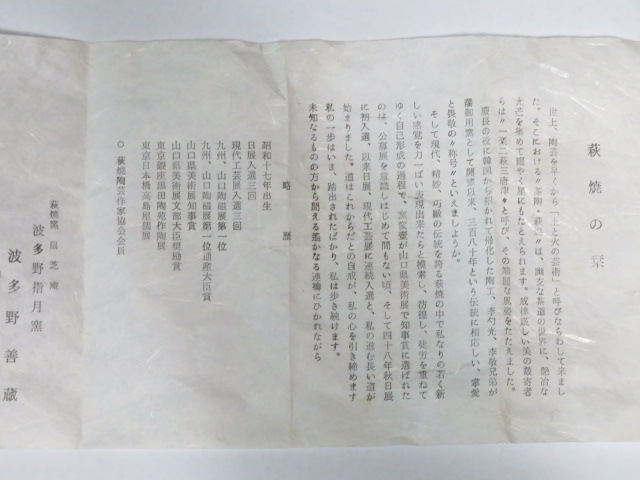 萩焼の栞
世上、陶芸を早くから「土と火の芸術」と呼びならわして来まし
た。そこにおける〃茶陶・萩〃は、幽玄な茶道の世界に、艶冶な
光芒を集めて耀やく星にもたとえられます。戒律厳しい美の数寄者
らは〃一楽二萩三唐津〃と呼び、その端麗な風姿をたたえました。
慶長の役に韓国から招かれて帰化した陶工、李勺光、李敬兄弟が
藩御用窯として開窯以来、三百八十年という伝統に相応しい、寵愛
と畏敬の〃称号〃といえましようか。
そして現代、精妙、巧緻の伝統を誇る萩焼の中で私なりの若く新
しい感覚を力一ぱい表現出来たらと模索し、彷徨し、徒労を重ねて
ゆく自己形成の過程で、窯変壷が山口県美術展で知事賞に選ばれた
のは、公募展を意識しはじめて間もない頃、そして四十八年秋日展
に初入選、以来日展、現代工芸展に連続入選と、私の進む長い道が
始まりました。道はこれからだとの自戒が、私の心を引き締めます
私の一歩はいま、踏出されたばかり、私は歩き続けます。
未知なるものの方から聞える遙かなる連禱にひかれながら
略歴
昭和十七年出生
日展入選三回
現代工芸展入選三回
九州、山口陶磁展第一位
九州、山口陶磁展第一位通産大臣賞
山口県美術展知事賞
山口県美術展文部大臣奨励賞
東京銀座黒田陶苑作陶展
東京日本橋高島屋個展
○ 萩焼陶芸作家協会会員
萩焼窯 芝庵
波多野指月窯
波多野善蔵